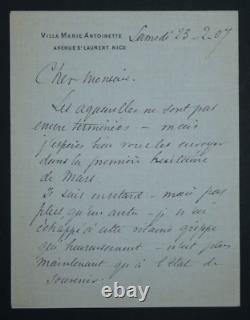 VILLA MARIE ANTOINETTE
AVENUE ST LAURENT NICE
Samedi 23-2-07
Cher Monsieur.
Les aquarelles ne sont pas
encore terminées - mais
j'espère bien vous les envoyer
dans la première huitaine
de Mars.
Je suis en retard - mais pas
plus qu'un autre - je n'ai
échappé à cette vilaine grippe
qui heureusement - n'est plus
maintenant qu'à l'état de
souvenir.
© ebay